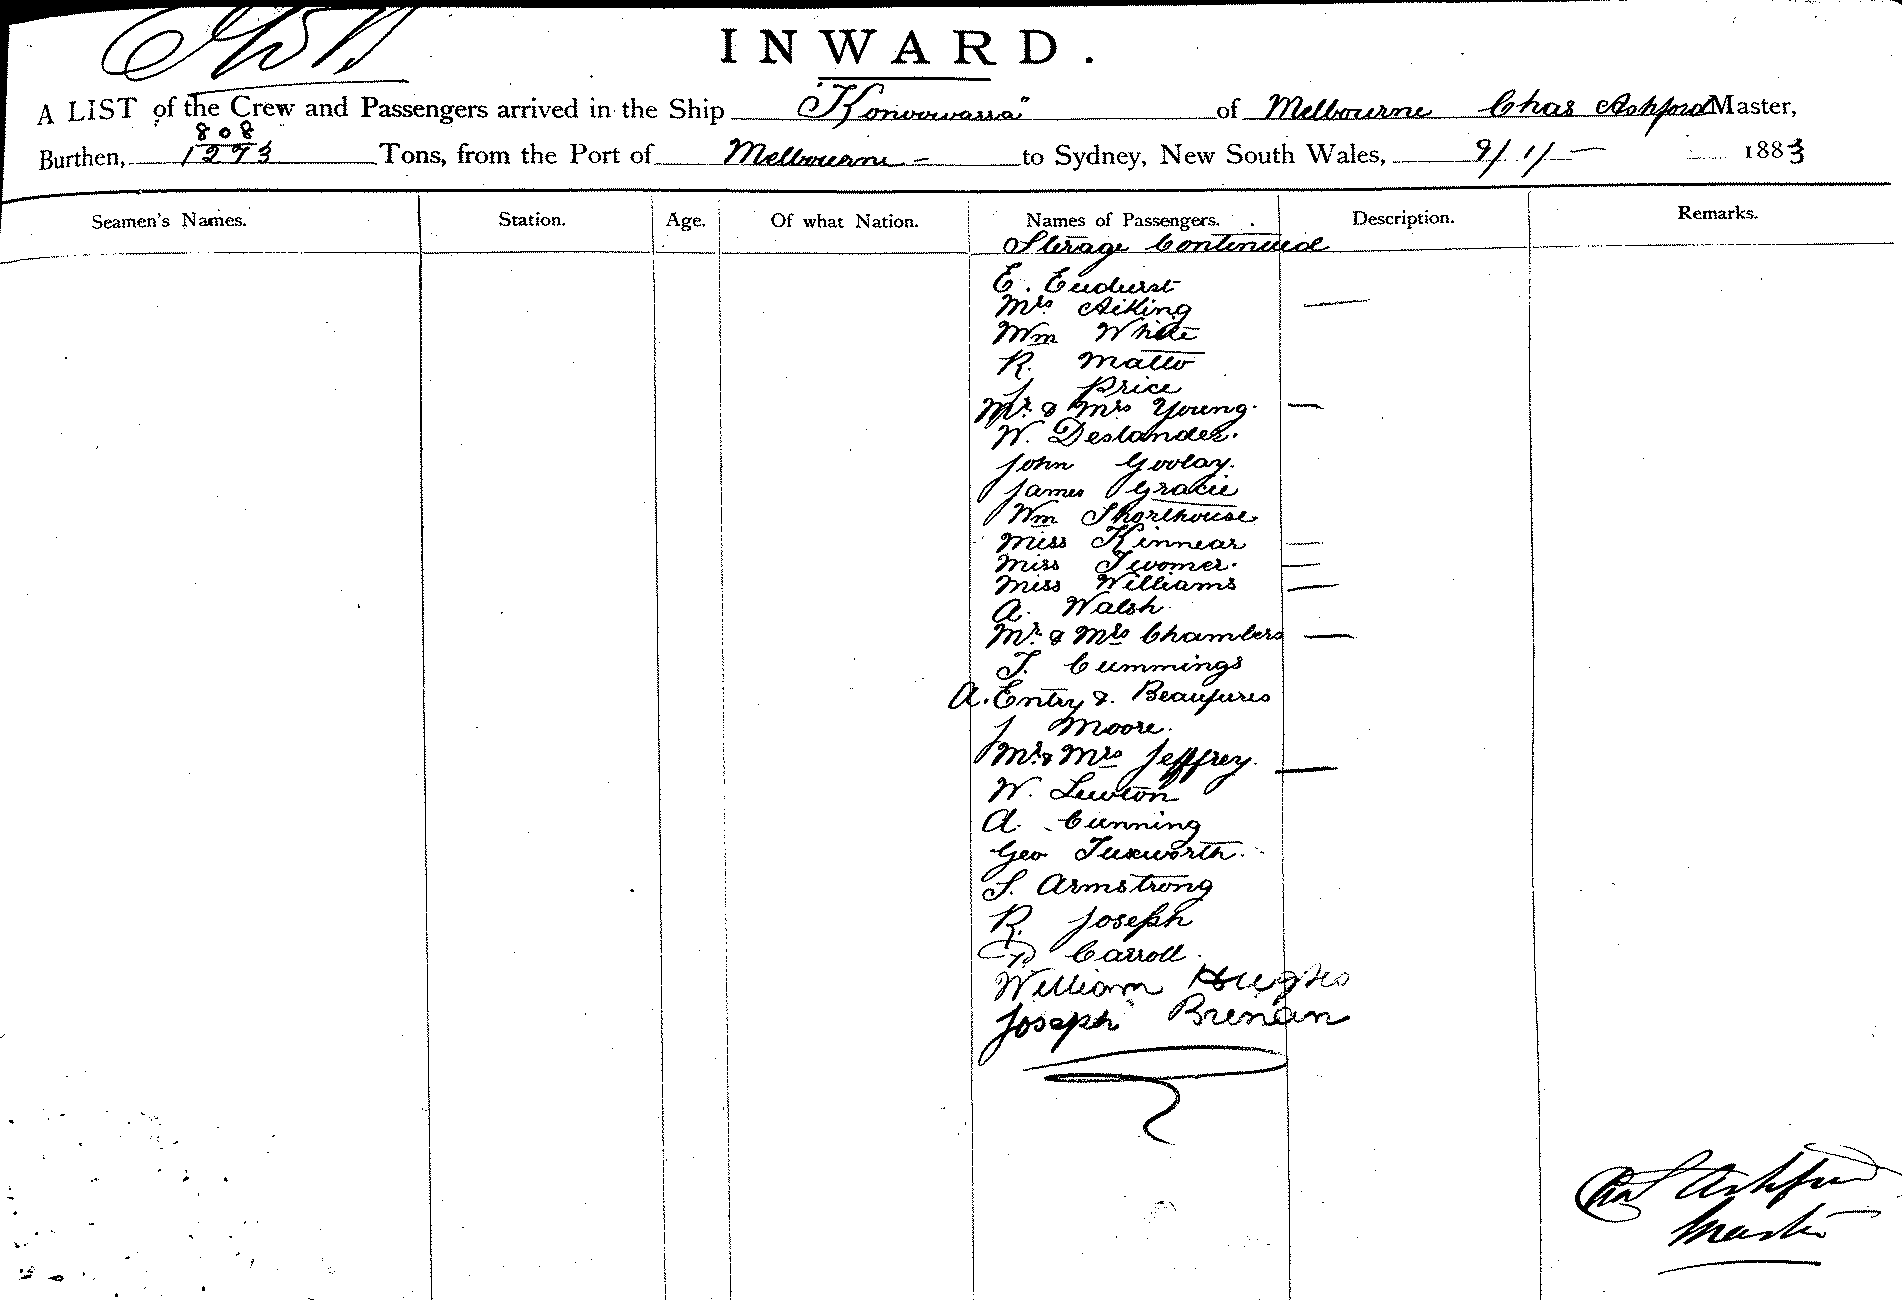 INWARD.
A LIST of the Crew and Passengers arrived in the Ship "Konoowarra" of Melbourne Chas Ashford Master,
808
Burthen, 1273 Tons, from the Port of Melbourne - to Sydney, New South Wales, 9/1/- 1883
Seamen's Names. Station. Age. Of what Nation. Names of Passengers. Description. Remarks.
Sterage Continued
E. Eudurst
Mrs Aitking —
Wm White
R. Matto
J Price
Mr & Mrs Young. —
W. Deslander.
John Goolay.
James Gracie
Wm Shorthouse
Miss Kinnear —
Miss Twomer. —
Miss Williams —
A. Walsh
Mr & Mrs Chambers —
T. Cummings
A. Entry &
J Moore.
Mr & Mrs Jeffrey. —
W. Lewton
A. Cunning
Geo Tuxworth.
S. Armstrong
R. Joseph
Carroll.
William Hughes
Joseph Brenan
Chas Ashford
Master